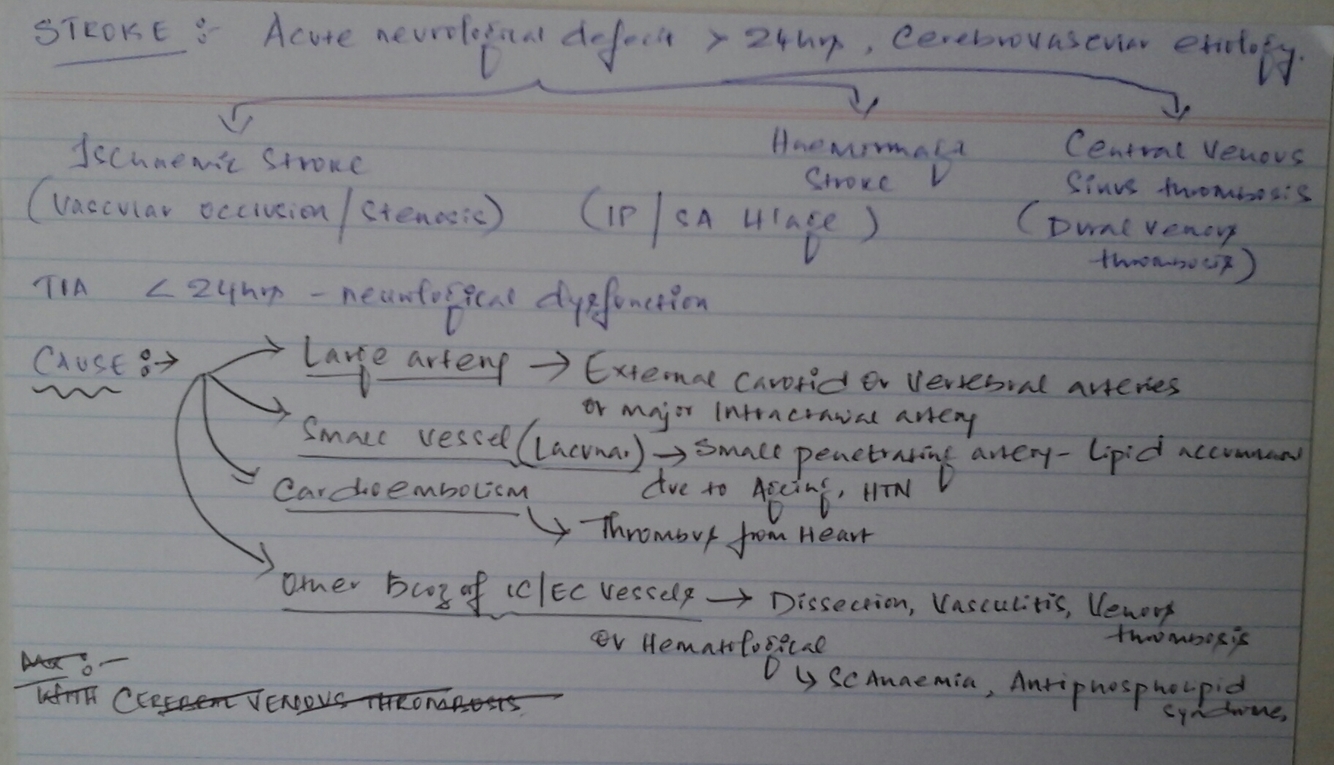 STROKE :- Acute neurological deficit > 24hrs, Cerebrovascular etiology.
Ischaemic Stroke
(Vascular occlusion/Stenosis)
Haemorrhage
Stroke
(IP/SA H'age)
Central Venous
Sinus thrombosis
(Dural Venous
thrombosis)
TIA < 24hrs - neurological dysfunction
CAUSE :→
Large artery → External Carotid or Vertebral arteries
or major Intracranial artery
Small vessel (Lacunar) → Small penetrating artery - Lipid
due to Ageing, HTN
Cardioembolism
↳ Thrombus from Heart
Other Bcoz of IC/EC Vessels → Dissection, Vasculitis, Venous
thrombosis
or Hematological
↳ SC Anaemia, Antiphospholipid
Syndrome,
WITH CEREBRAL VENOUS THROMBOSIS